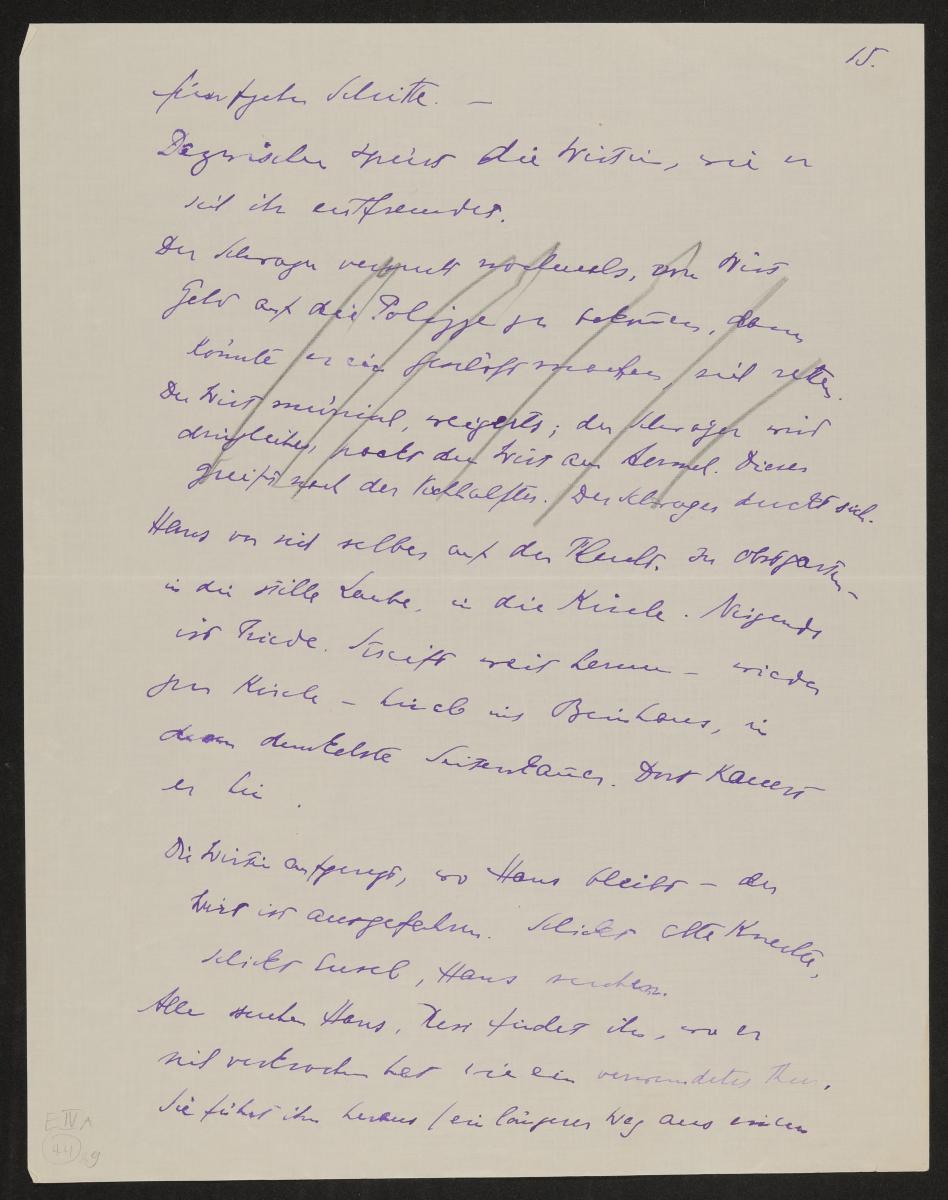 15.
fünfzehn Schritte. —
Dazwischen spürt die Wirtin, wie er
sich ihr entfremdet.
Der Schwager versucht nochmals, vom Wirt
Geld auf die Polizze zu bekommen, dann
könnte er ein Geschäft machen, sich retten.
Der Wirt weigerts; der Schwager wird
dringlicher, packt den Wirt am Aermel. Dieser
greift nach der. Der Schwager duckt sich.
Hans vor sich selber auf der Flucht. Im Obstgarten –
in die stille Laube, in die Kirche. Nirgends
ist Friede. Streift weit herum – wieder
zur Kirche – hinab ins Beinhaus, in
dunkelste Seitenkammer. Dort kauert
er hin.
Die Wirtin aufgeregt, wo Hans bleibt – der
Wirt ist ausgefahren. Schickt alte Knechte,
schickt Susel, Hans suchen.
Alle suchen Hans, Resi findet ihn, wo er
sich verkrochen hat wie ein verwundetes Tier.
Sie führt ihn heraus / ein längerer Weg aus
E IV A
44 49